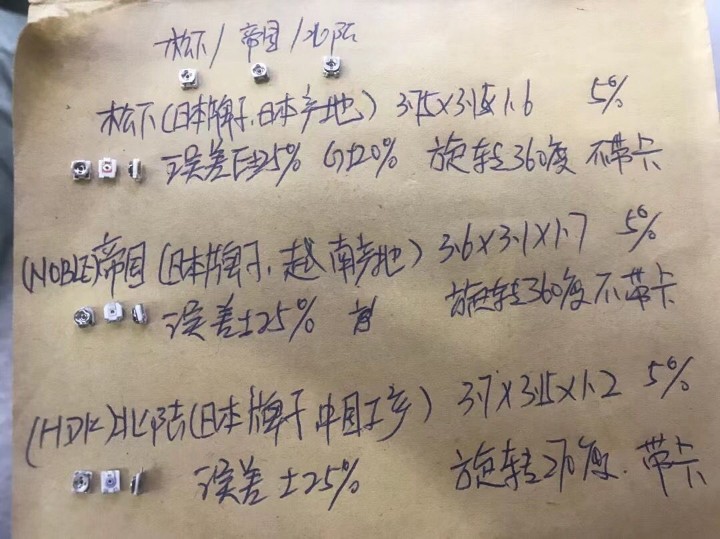 松下/帝国/北陆
松下(日本牌子,日本产地) 3.75×3.15×1.6 5%
误差E±25% G±20% 旋转360度 不带卡
(NOBLE)帝国(日本牌子,越南产地) 3.6×3.1×1.7 5%
误差±25% 旋转360度不带卡
(HDK)北陆(日本牌子 中国工产) 3.7×3.15×1.2 5%
误差±25% 旋转270度.带卡